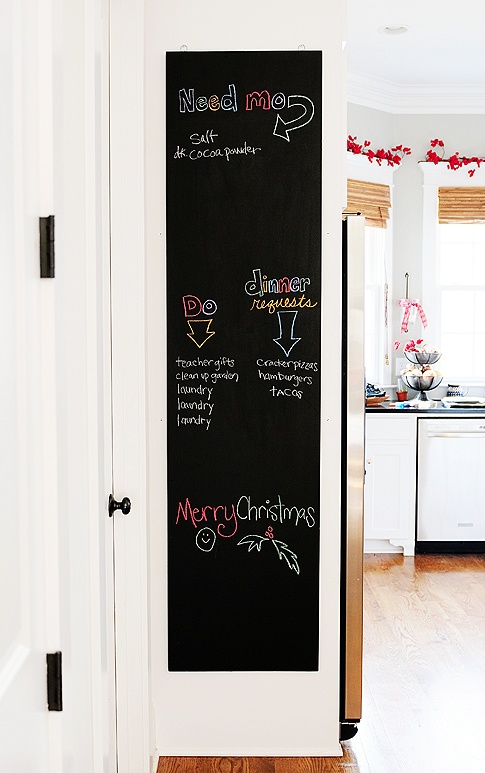 Need mo
Salt
dk. cocoa powder
Do
teacher gifts
clean up garden
laundry
laundry
laundry
dinner
requests
crackerpizzas
hamburgers
tacos
Merry Christmas